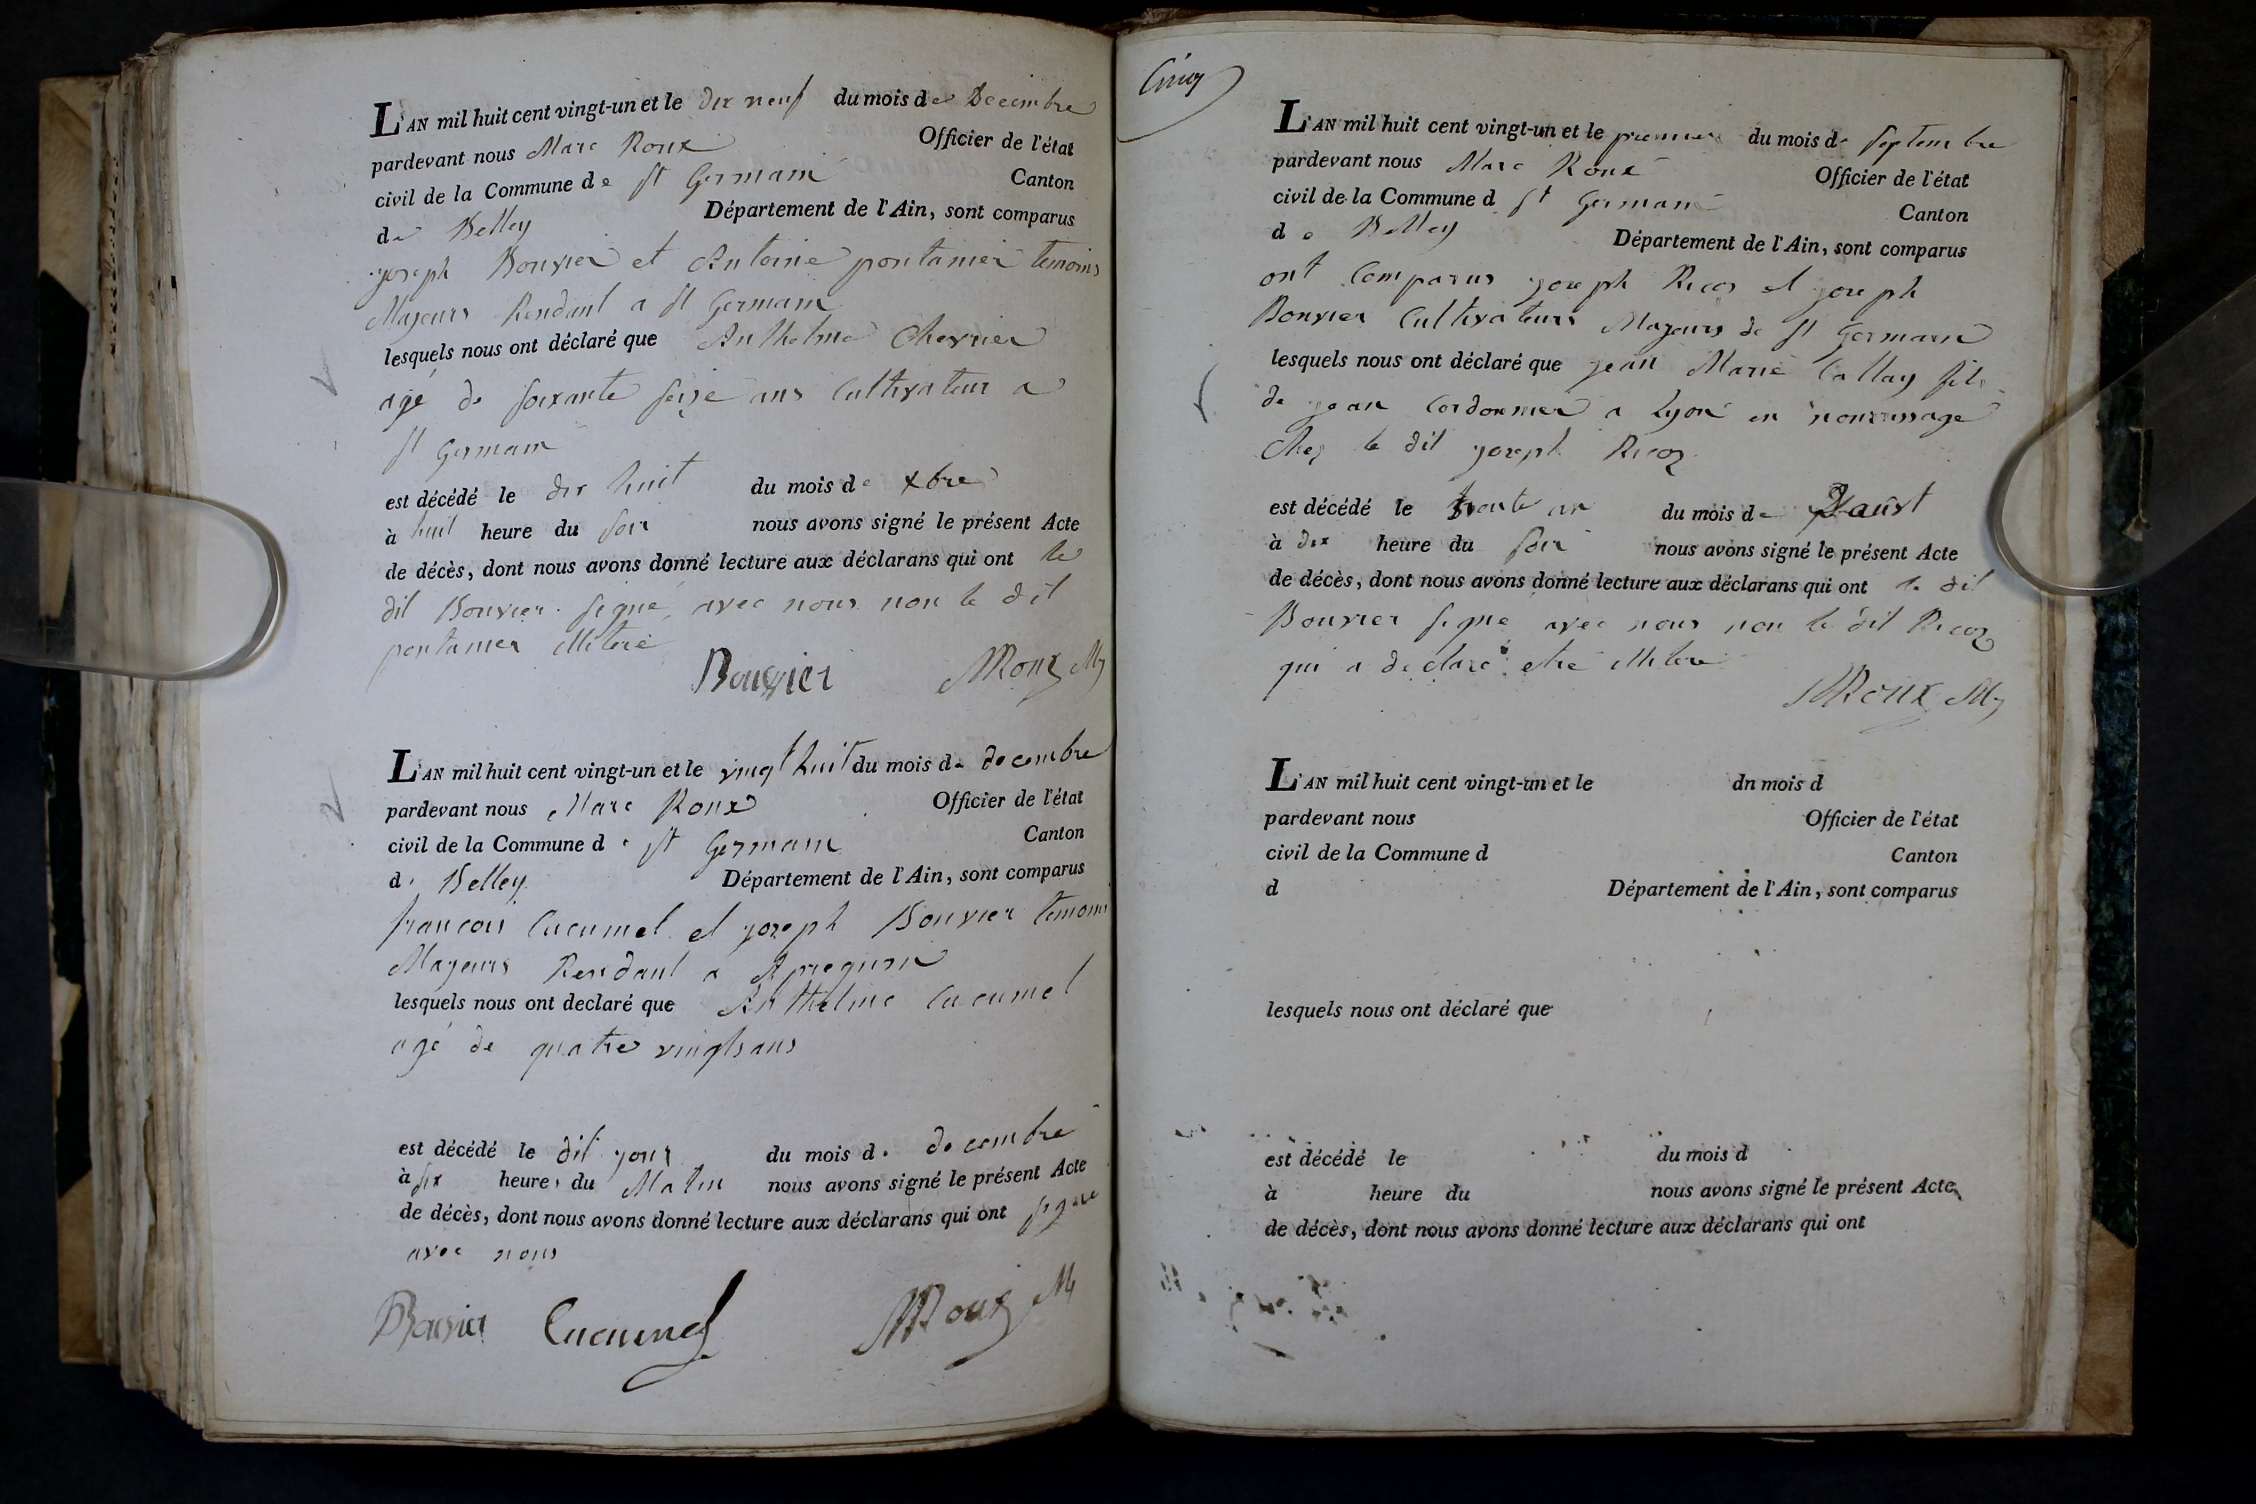 L'AN mil huit cent vingt-un et le dix neuf du mois de Decembre
pardevant nous Marc Roux Officier de l'état
civil de la Commune de st Germain Canton
de Belley Département de l'Ain, sont comparus
joseph Bouvier et Antoine pontanier temoins
Majeurs Residant a st Germain
lesquels nous ont déclaré que Anthelme Chevrier
agé de soixante seize ans Cultivateur a
st Germain
est décédé le dix huit du mois de xbre
à huit heure du soir nous avons signé le présent Acte
de décès, dont nous avons donné lecture aux déclarans qui ont le
dit Bouvier signé avec nous non le dit
pontanier illiteré
Bouvier MRoux My
L'AN mil huit cent vingt-un et le vingt huit du mois de decembre
pardevant nous Marc Roux Officier de l'état
civil de la Commune de st Germain Canton
de Belley Département de l'Ain, sont comparus
francois Cucumel et joseph Bouvier temoins
Majeurs Residant a
lesquels nous ont declaré que Anthelme Cucumel
agé de quatre vingts ans
est décédé le dit jour du mois de decembre
à six heures du Matin nous avons signé le présent Acte
de décès, dont nous avons donné lecture aux déclarans qui ont signé
avec nous
Bouvier Cucumel MRoux My
Cinq
L'AN mil huit cent vingt-un et le premier du mois de septembre
pardevant nous Marc Roux Officier de l'état
civil de la Commune d st Germain Canton
de Belley Département de l'Ain, sont comparus
ont Comparus joseph Ricoz et joseph
Bouvier Cultivateurs Majeurs de st Germain
lesquels nous ont déclaré que jean Marie Callay fils
de jean Cordonnier a Lyon en nourissage
Chez le dit joseph Ricoz
est décédé le trente un du mois de D'aoust
à dix heure du soir nous avons signé le présent Acte
de décès, dont nous avons donné lecture aux déclarans qui ont le dit
Bouvier signé avec nous non le dit Ricoz
qui a declaré etre illiteré
MRoux My
L'AN mil huit cent vingt-un et le dn mois d
pardevant nous Officier de l'état
civil de la Commune d Canton
d Département de l'Ain, sont comparus
lesquels nous ont déclaré que
est décédé le du mois d
à heure du nous avons signé le présent Acte
de décès, dont nous avons donné lecture aux déclarans qui ont